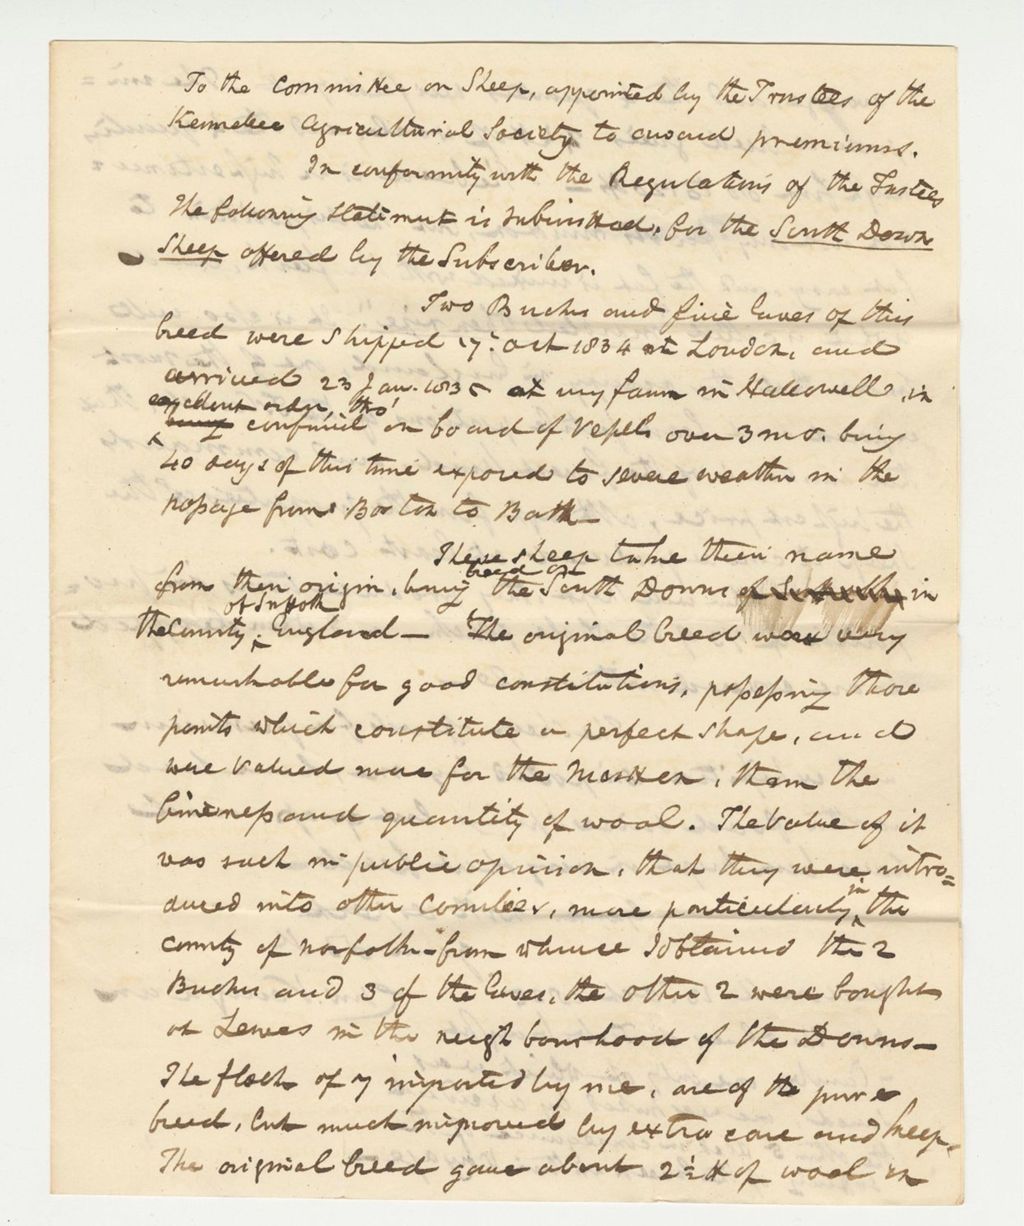 To the Committee on Sheep, appointed by the Trustees of the
Kennebec Agricultural Society to award premiums.
In conformity with the Regulations of the Trustees
the following statement is submitted, for the South Down
Sheep offered by the Subscriber.
Two Bucks and five Ewes of this
breed were shipped 17. Oct 1834 at London, and
arrived 23 Jan. 1835 at my farm in Hallowell, in
excellent order, tho'
confined on board of Vessels over 3 mo. being
40 days of this time exposed to severe weather in the
passage from Boston to Bath—
These sheep take their name
breed on
from their origin, being the South Downs of Suffolk in
of Suffolk
the County, England— The original breed were very
remarkable for good constitutions, possessing those
points which constitute a perfect shape, and
were valued more for the Mutton, than the
fineness and quantity of wool. The Value of it
was such in public opinion, that they were intro=
duced into other Counties, more particularly in the
county of Norfolk—from whence I obtained the 2
Bucks and 3 of the Ewes, the other 2 were bought
at Lewes in the neighbourhood of the Downs—
The flock of 7 imported by me, are of the pure
breed, but much improved by extra care and keep.
The original breed gave about 2½ lb of wool in